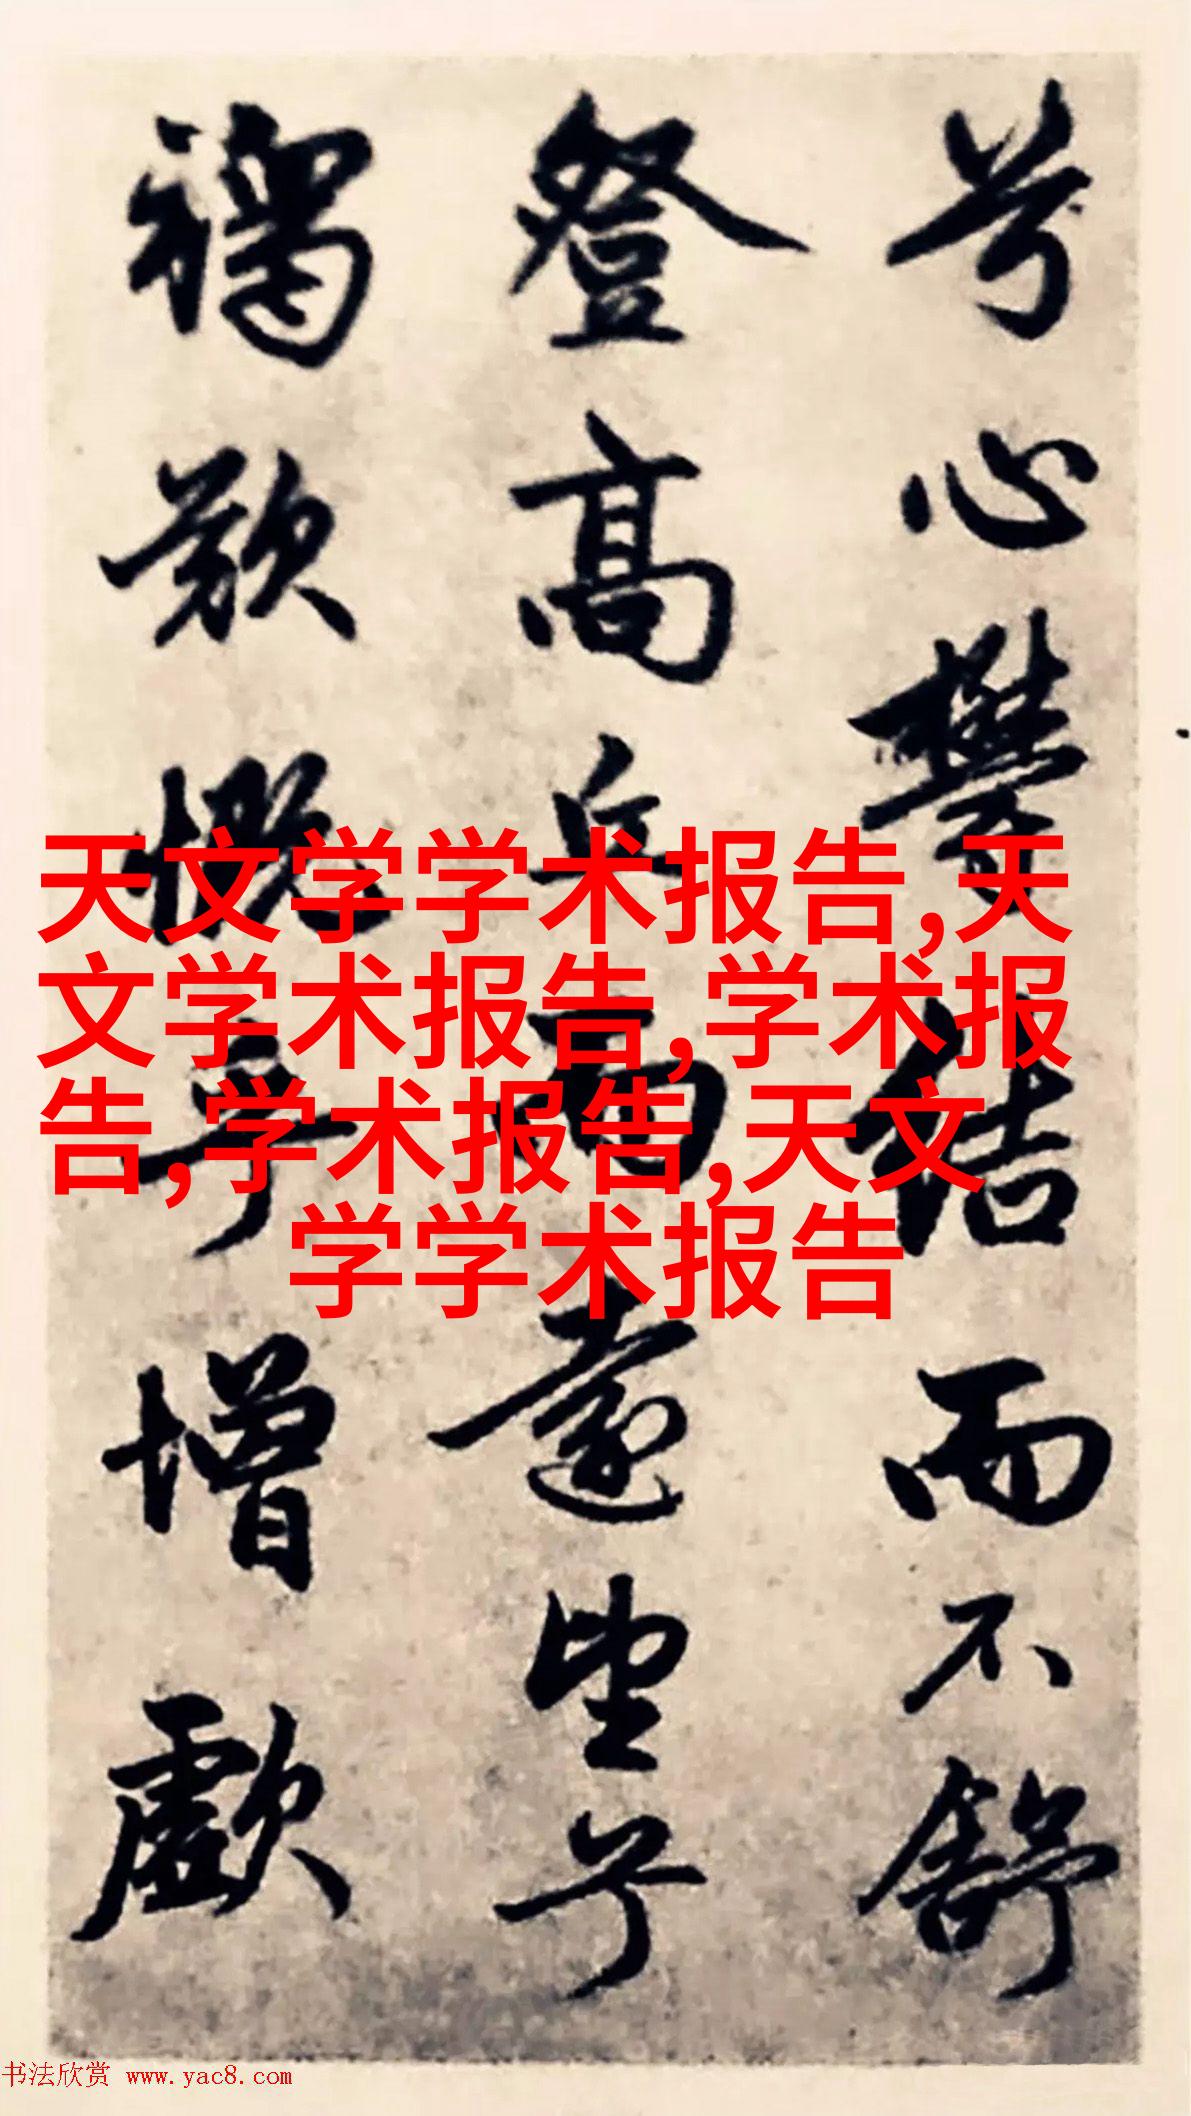 兮心鬱結而不舒
登高丘而遠望兮
歎慨增歔
天文学学术报告,天
文学术报告,学术报
告,学术报告,天文
学学术报告
书法欣赏 www.yac8.com